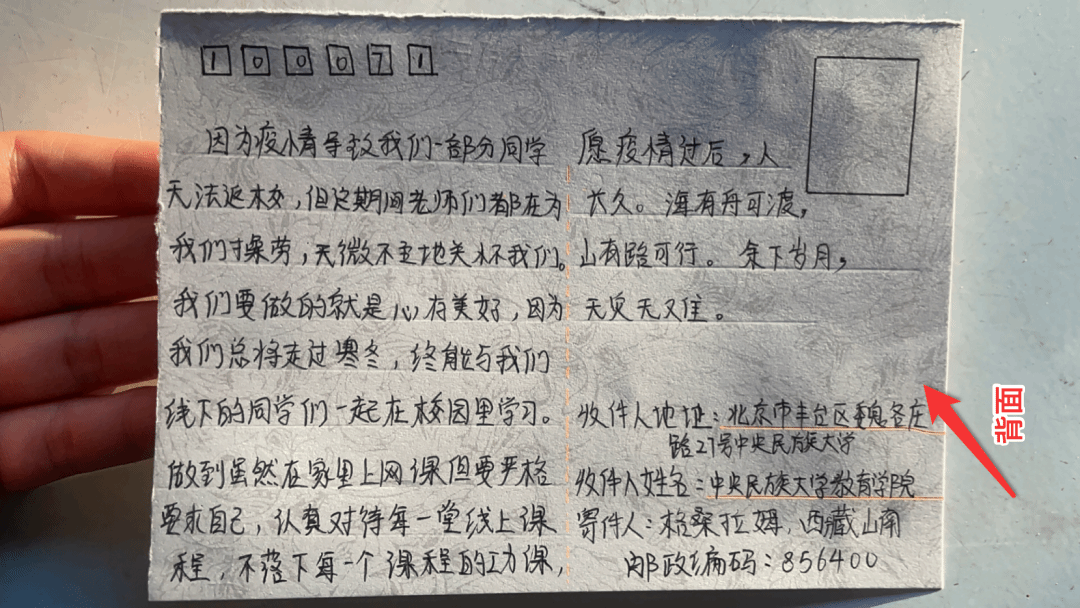 100071
因为疫情导致我们一部分同学
无法返校，但这期间老师们都在为
我们操劳，无微不至地关怀我们。
我们要做的就是心有美好，因为
我们总将走过寒冬，终能与我们
线下的同学们一起在校园里学习。
做到虽然在家里上网课但要严格
要求自己，认真对待每一堂线上课
程，不落下每一个课程的功课，
愿疫情过后，人
长久。海有舟可渡，
山有路可行。余下岁月，
无灾无又难。
收件人地址：北京市丰台区魏各庄
路27号中央民族大学
收件人姓名：中央民族大学教育学院
寄件人：格桑拉姆，西藏山南
邮政编码：856400
背面